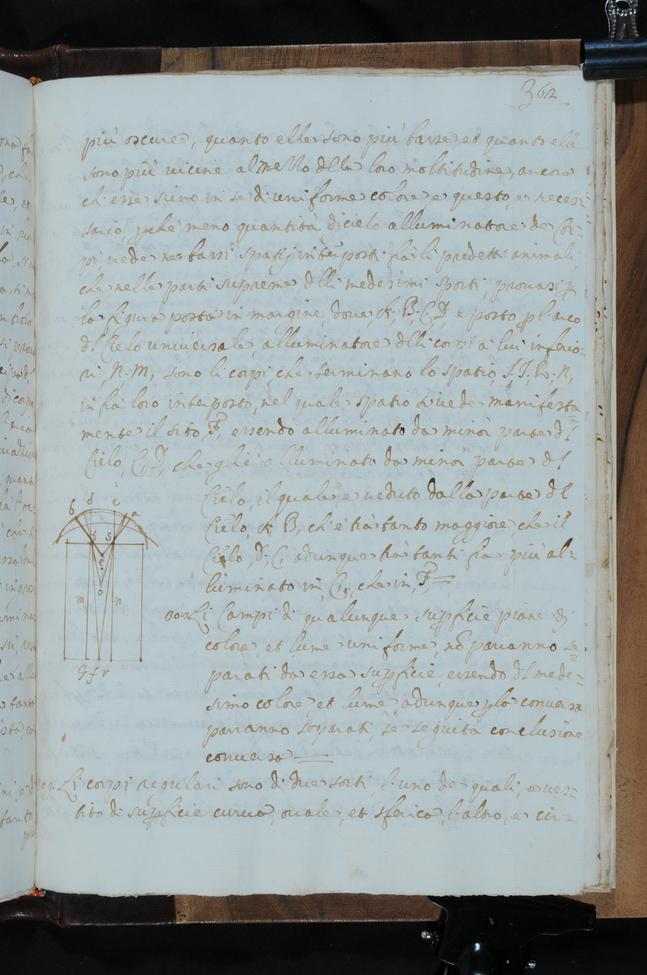 362
più oscure, quanto elle sono più basse, et quanto elle
sono più vicine al mezzo della loro moltitudine, ancora
ch'esse sieno in se di uniforme colore, e questo, è neces-
sario, perche meno quantità di cielo alluminatore de Cor-
pi vede ne bassi spatij interposti fra li predetti animali
che nelle parti supreme delli medesimi spatij, provasi p
la figura posta in margine, dove, A, B, C, D, è posto p l'arco
del Cielo universale, alluminatore delli corpi a lui inferio-
ri, N. M, sono li corpi, che terminano lo spatio, S.T, R, N,
infra loro interposto, nel quale spatio si vede manifesta-
mente il sito, F, essendo alluminato da minor parte del
Cielo, C, D, che gl'è alluminato da minor parte del
Cielo, il quale, è veduto dalla parte del
Cielo, A, B, ch'è tra tanto maggiore, che il
Cielo, D, C, adunque fia tanti fia più al-
luminato in, E, che in, F,
Li Campi di qualunque supficie piane di
colore et lume uniforme, nõ parranno se-
parati da essa supficie, essendo del mede-
simo colore et lume, adunque plo converso
parranno separati, se seguita conclusione
conversa
Li corpi regulari sono di due sorti l'uno de quali, è ves-
tito di supficie curva, ovale, et sferica, l'altro, è cir-
b d c a
t s
e
o
m n
G f r